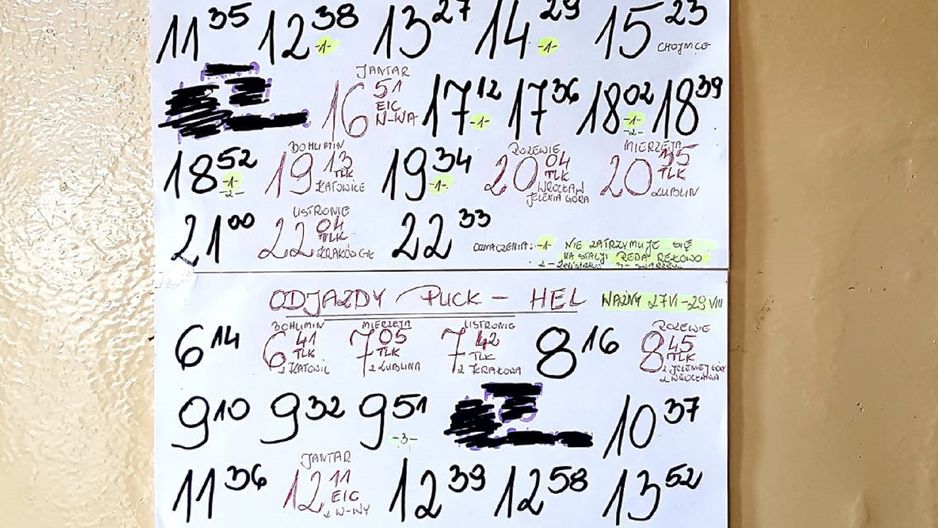 11 35 12 38 -1- 13 27 14 29 -1- 15 23 CHOJNICE
JANTAR
16 51 EIC W-WA 17 12 -1- 17 36 18 02 -1- -2- 18 39
BOHUMIN ROZEWIE MIERZEJA
18 52 -1- -2- 19 13 TLK KATOWICE 19 34 -1- 20 04 TLK WROCŁAW JELENIA GÓRA 20 35 TLK LUBLIN
USTRONIE
21 00 22 04 TLK KRAKÓW GŁ 22 33 OZNACZENIA: -1- NIE ZATRZYMUJE SIĘ
NA STACJI REDA REKOWO
ODJAZDY PUCK - HEL WAŻNY 27 VI - 29 VIII
BOHUMIN MIERZEJA USTRONIE ROZEWIE
6 14 6 41 TLK Z KATOWIC 7 05 TLK Z LUBLINA 7 42 TLK Z KRAKOWA 8 16 8 45 TLK Z JELENIEJ GÓRY Z WROCŁAWIA
9 10 9 32 9 51 -3- 10 37
JANTAR
11 36 12 11 EIC Z W-WY 12 39 12 58 13 52